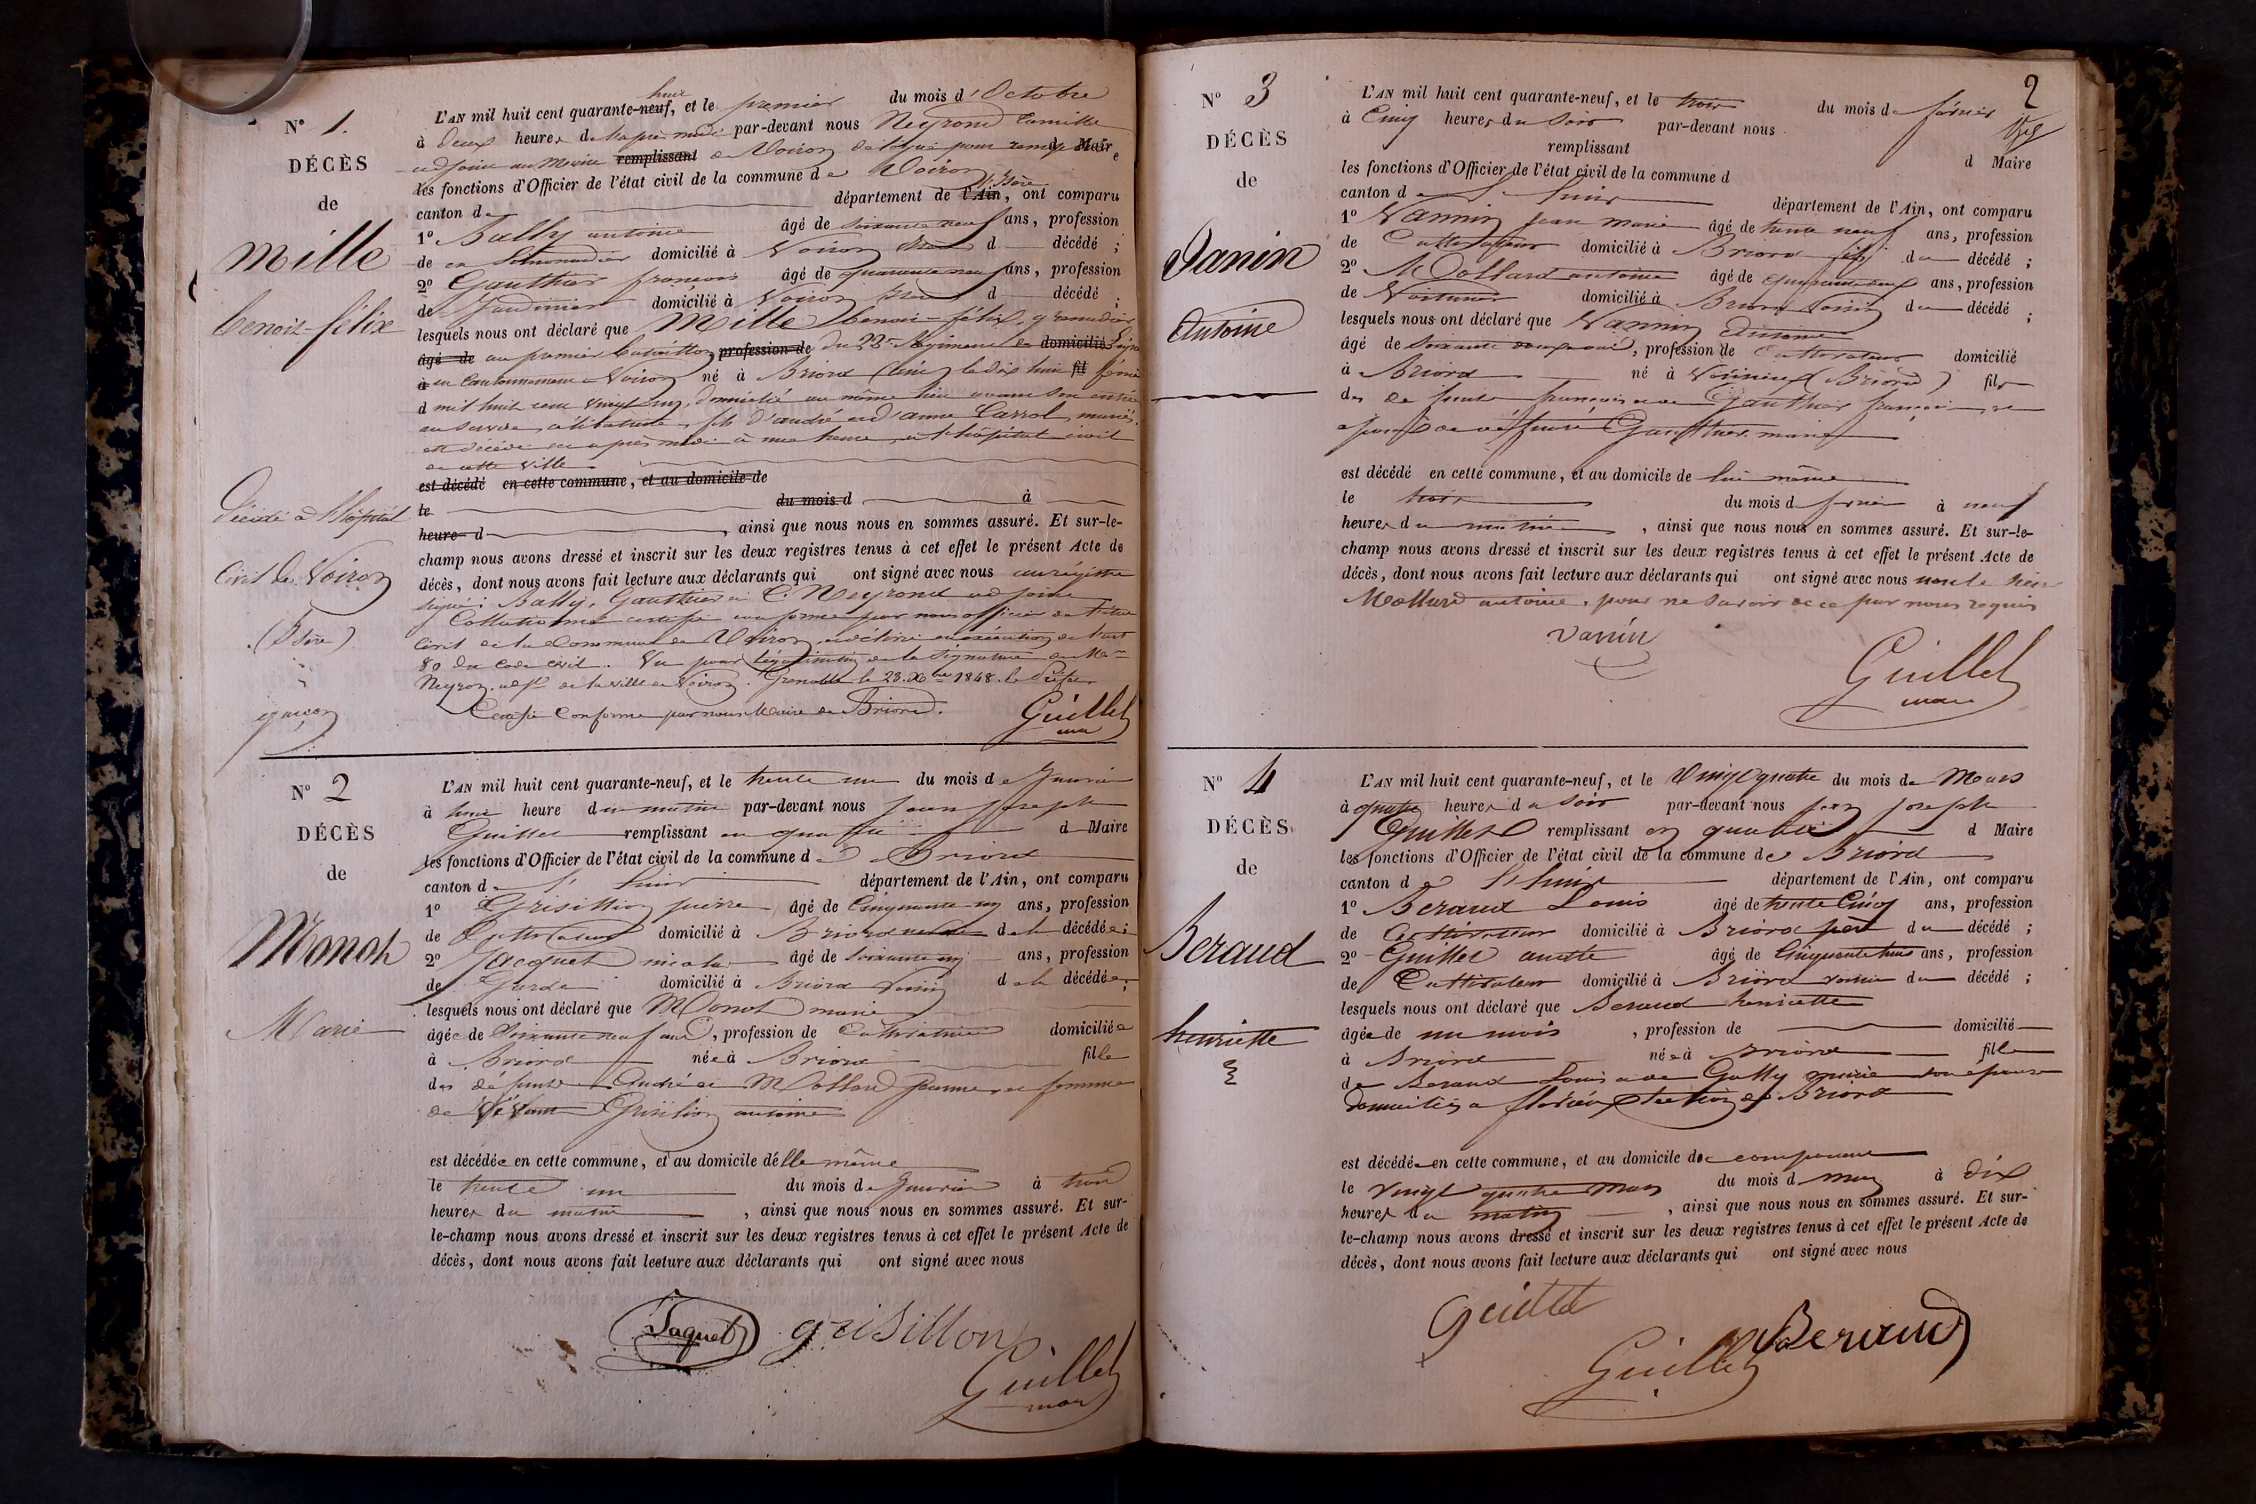 N° 1.
DÉCÈS
de
Mille
benoit-félix
Décédé à l'hôpital
Civil de Voiron
(Isère)
garçon
L'AN mil huit cent quarante-neuf, huit et le premier du mois d'Octobre
à deux heures de l'après midi par-devant nous Neyrond Camille
adjoint au Maire remplissant de Voiron délégué pour remplir d Maire
les fonctions d'Officier de l'état civil de la commune de Voiron
canton d département de l'Ain, Isère ont comparu
1° Bally antoine âgé de soixante neuf ans, profession
de cordonnier domicilié à Voiron d décédé ;
2° Gauthier françois âgé de quarante neuf ans, profession
de Jardinier domicilié à Voiron d décédé ;
lesquels nous ont déclaré que Mille benoit-félix, grenadier
âgé de au premier bataillon profession de du 22e Régiment de domicilié Ligne
à en Cantonnement à Voiron né à Briord (Ain) le dix huit fil février
d mil huit cent vingt cinq, domicilié au même lieu avant son entrée
au service, célibataire, fils d'andré et d'anne Carrel, mariés,
est décédé cet après midi à une heure, à l'hôpital civil
de cette ville
est décédé en cette commune, et au domicile de
le du mois d à
heure d , ainsi que nous nous en sommes assuré. Et sur-le-
champ nous avons dressé et inscrit sur les deux registres tenus à cet effet le présent Acte de
décès, dont nous avons fait lecture aux déclarants qui ont signé avec nous au registre
signé : Bally, Gauthier et C. Neyrond adjoint
Collationné certifié conforme par nous officier de l'état
Civil de la Commune de Voiron, et délivré en exécution de l'art
80 du Code civil. Vu pour légalisation de la signature de Mr
Neyron, adjt de la ville de Voiron. Grenoble le 23 Xbre 1848. le Préfet
Certifié Conforme par nous Maire de Briord.
Guillet
maire
N° 2
DÉCÈS
de
Monoh
Marie
L'AN mil huit cent quarante-neuf, et le trente un du mois de Janvier
à heure du matin par-devant nous Jean Joseph
Guillet remplissant en qualité d Maire
les fonctions d'Officier de l'état civil de la commune de Briord
canton de département de l'Ain, ont comparu
1° Grisillion pierre âgé de Cinquante ans, profession
de Cultivateur domicilié à Briord de la décédée ;
2° Jacquet nicolas âgé de soixante ans, profession
de Garde domicilié à Briord voisin de la décédée ;
lesquels nous ont déclaré que Monoh marie
âgée de Soixante neuf ans, profession de Cultivatrice domiciliée
à Briord née à Briord fille
des défunts André et Mollard Jeanne, et femme
de vivant Grisilion antoine
est décédée en cette commune, et au domicile d'elle même
le trente un du mois de Janvier à trois
heures du matin , ainsi que nous nous en sommes assuré. Et sur-
le-champ nous avons dressé et inscrit sur les deux registres tenus à cet effet le présent Acte de
décès, dont nous avons fait lecture aux déclarants qui ont signé avec nous
Jaquet grisillon
Guillet
maire
2
N° 3
DÉCÈS
de
Vanin
Antoine
L'AN mil huit cent quarante-neuf, et le trois du mois de février
à Cinq heures du soir par-devant nous
remplissant d Maire
les fonctions d'Officier de l'état civil de la commune d
canton de département de l'Ain, ont comparu
1° Vannin Jean marie âgé de trente neuf ans, profession
de Cultivateur domicilié à Briord fils du décédé ;
2° Mollard antoine âgé de ans, profession
de Voiturier domicilié à Briord voisin du décédé ;
lesquels nous ont déclaré que Vannin Antoine
âgé de , profession de Cultivateur domicilié
à Briord né à (Briord) fils
des de funts françois et de Gauthier françoise, et
époux de défunte Gauthier marie
est décédé en cette commune, et au domicile de lui même
le trois du mois de février à neuf
heures du matin , ainsi que nous nous en sommes assuré. Et sur-le-
champ nous avons dressé et inscrit sur les deux registres tenus à cet effet le présent Acte de
décès, dont nous avons fait lecture aux déclarants qui ont signé avec nous non le
Mollard antoine, pour ne savoir de ce par nous requis
vanin
Guillet
maire
N° 4
DÉCÈS
de
Beraud
henriette
L'AN mil huit cent quarante-neuf, et le Vingt quatre du mois de Mars
à quatre heures du soir par-devant nous Jean Joseph
Guillet remplissant en qualité d Maire
les fonctions d'Officier de l'état civil de la commune de Briord
canton de département de l'Ain, ont comparu
1° Beraud Louis âgé de trente Cinq ans, profession
de Cultivateur domicilié à Briord père du décédé ;
2° Guillet âgé de ans, profession
de Cultivateur domicilié à Briord voisin du décédé ;
lesquels nous ont déclaré que Beraud henriette
âgée de un mois , profession de domicilié
à Briord née à Briord fille
de Beraud Louis et de Gally marie son épouse
domiciliés a Section de Briord
est décédée en cette commune, et au domicile de comparant
le vingt quatre mars du mois d mars à dix
heures du matin , ainsi que nous nous en sommes assuré. Et sur-
le-champ nous avons dressé et inscrit sur les deux registres tenus à cet effet le présent Acte de
décès, dont nous avons fait lecture aux déclarants qui ont signé avec nous
guillet
Beraud
Guillet